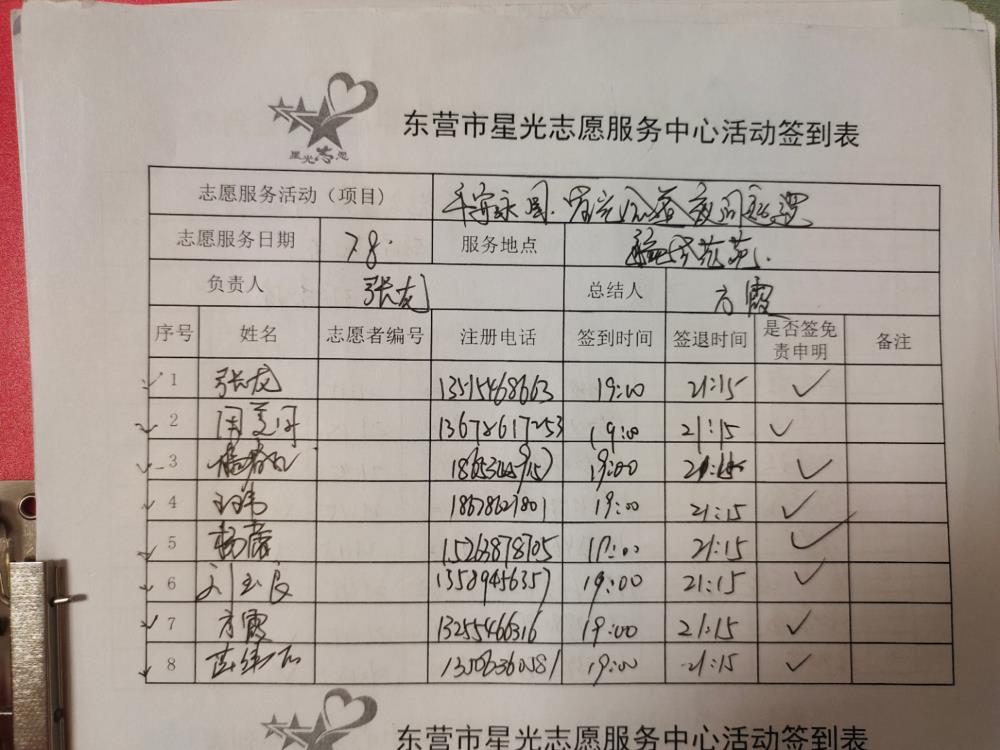 星光志愿
东营市星光志愿服务中心活动签到表
志愿服务活动（项目） 平安家园.
志愿服务日期 7.8. 服务地点
负责人 张龙 总结人 方霞
序号 姓名 志愿者编号 注册电话 签到时间 签退时间 是否签免责申明 备注
1 张龙 13515468663 19:00 21:15 ✓
2 13678617253 19:00 21:15 ✓
3 19:00 21:15 ✓
4 王玮 18678627801 19:00 21:15 ✓
5 15263878705 19:00 21:15 ✓
6 刘玉良 13589456357 19:00 21:15 ✓
7 方霞 13255466316 19:00 21:15 ✓
8 13506360581 19:00 21:15 ✓
东营市星光志愿服务中心活动签到表